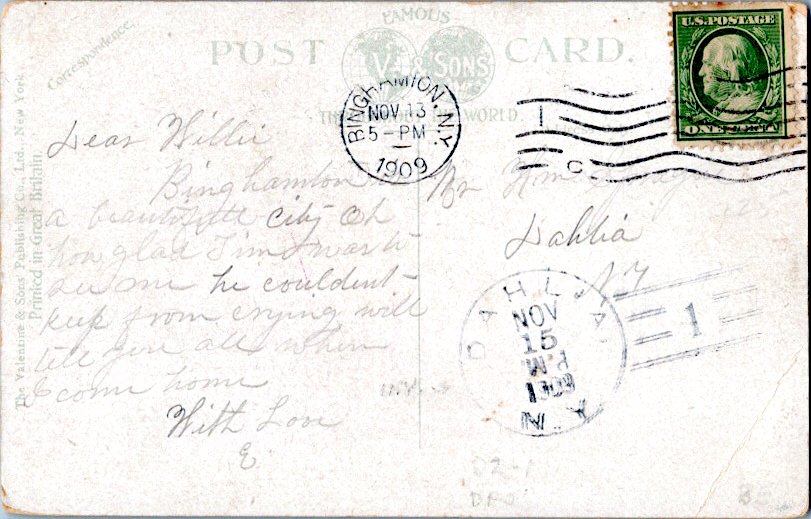 FAMOUS
POST CARD.
V & SONS
THE WORLD.
Correspondence.
U.S. POSTAGE
ONE CENT
BINGHAMTON, N.Y.
NOV 13
5-PM
1909
1
C
Dear Willie
Binghamton is
a beautifull city Oh
how glad Tim was to
see me he couldent
keep from crying will
tell you all when
I come home
With Love
E
Mr Wm
Dahlia
N.Y
DAHLIA
NOV
15
1909
N.Y.
1
INV.
DPO
The Valentine & Sons Publishing Co., Ltd., New York.
Printed in Great Britain.